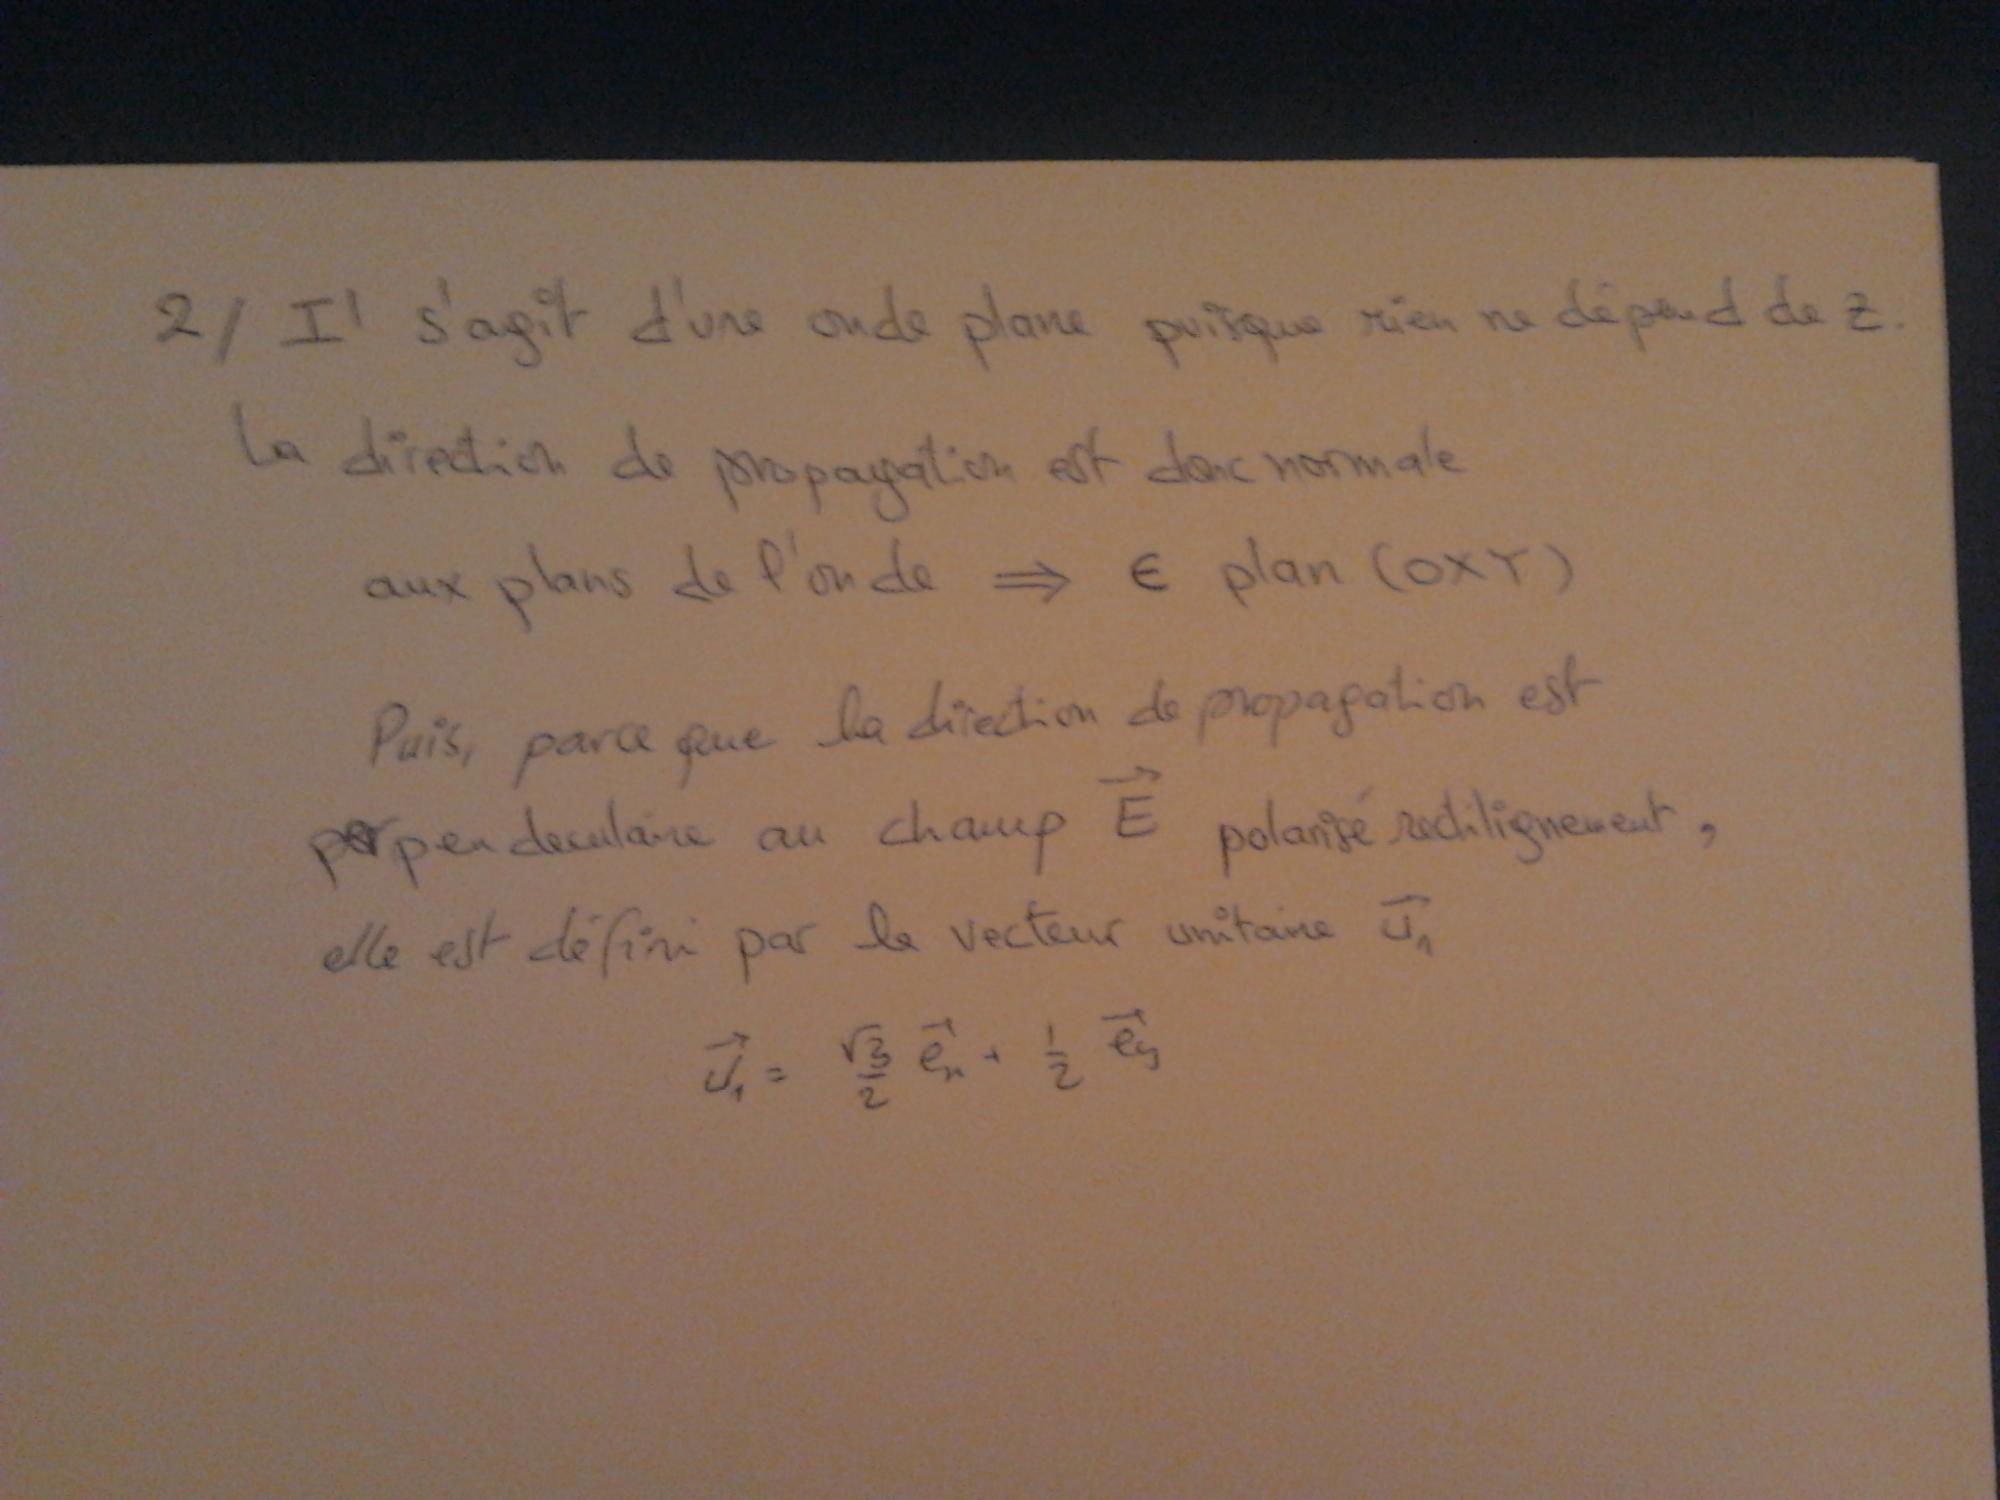 2/ Il s'agit d'une onde plane puisque rien ne dépend de z.
La direction de propagation est donc normale
aux plans de l'onde ⇒ ∈ plan (OXY)
Puis, parce que la direction de propagation est
perpendeculaire au champ E⃗ polarisé rectilignement,
elle est défini par le vecteur unitaire u⃗₁
u⃗₁ = √3/2 e⃗ₓ + 1/2 e⃗y